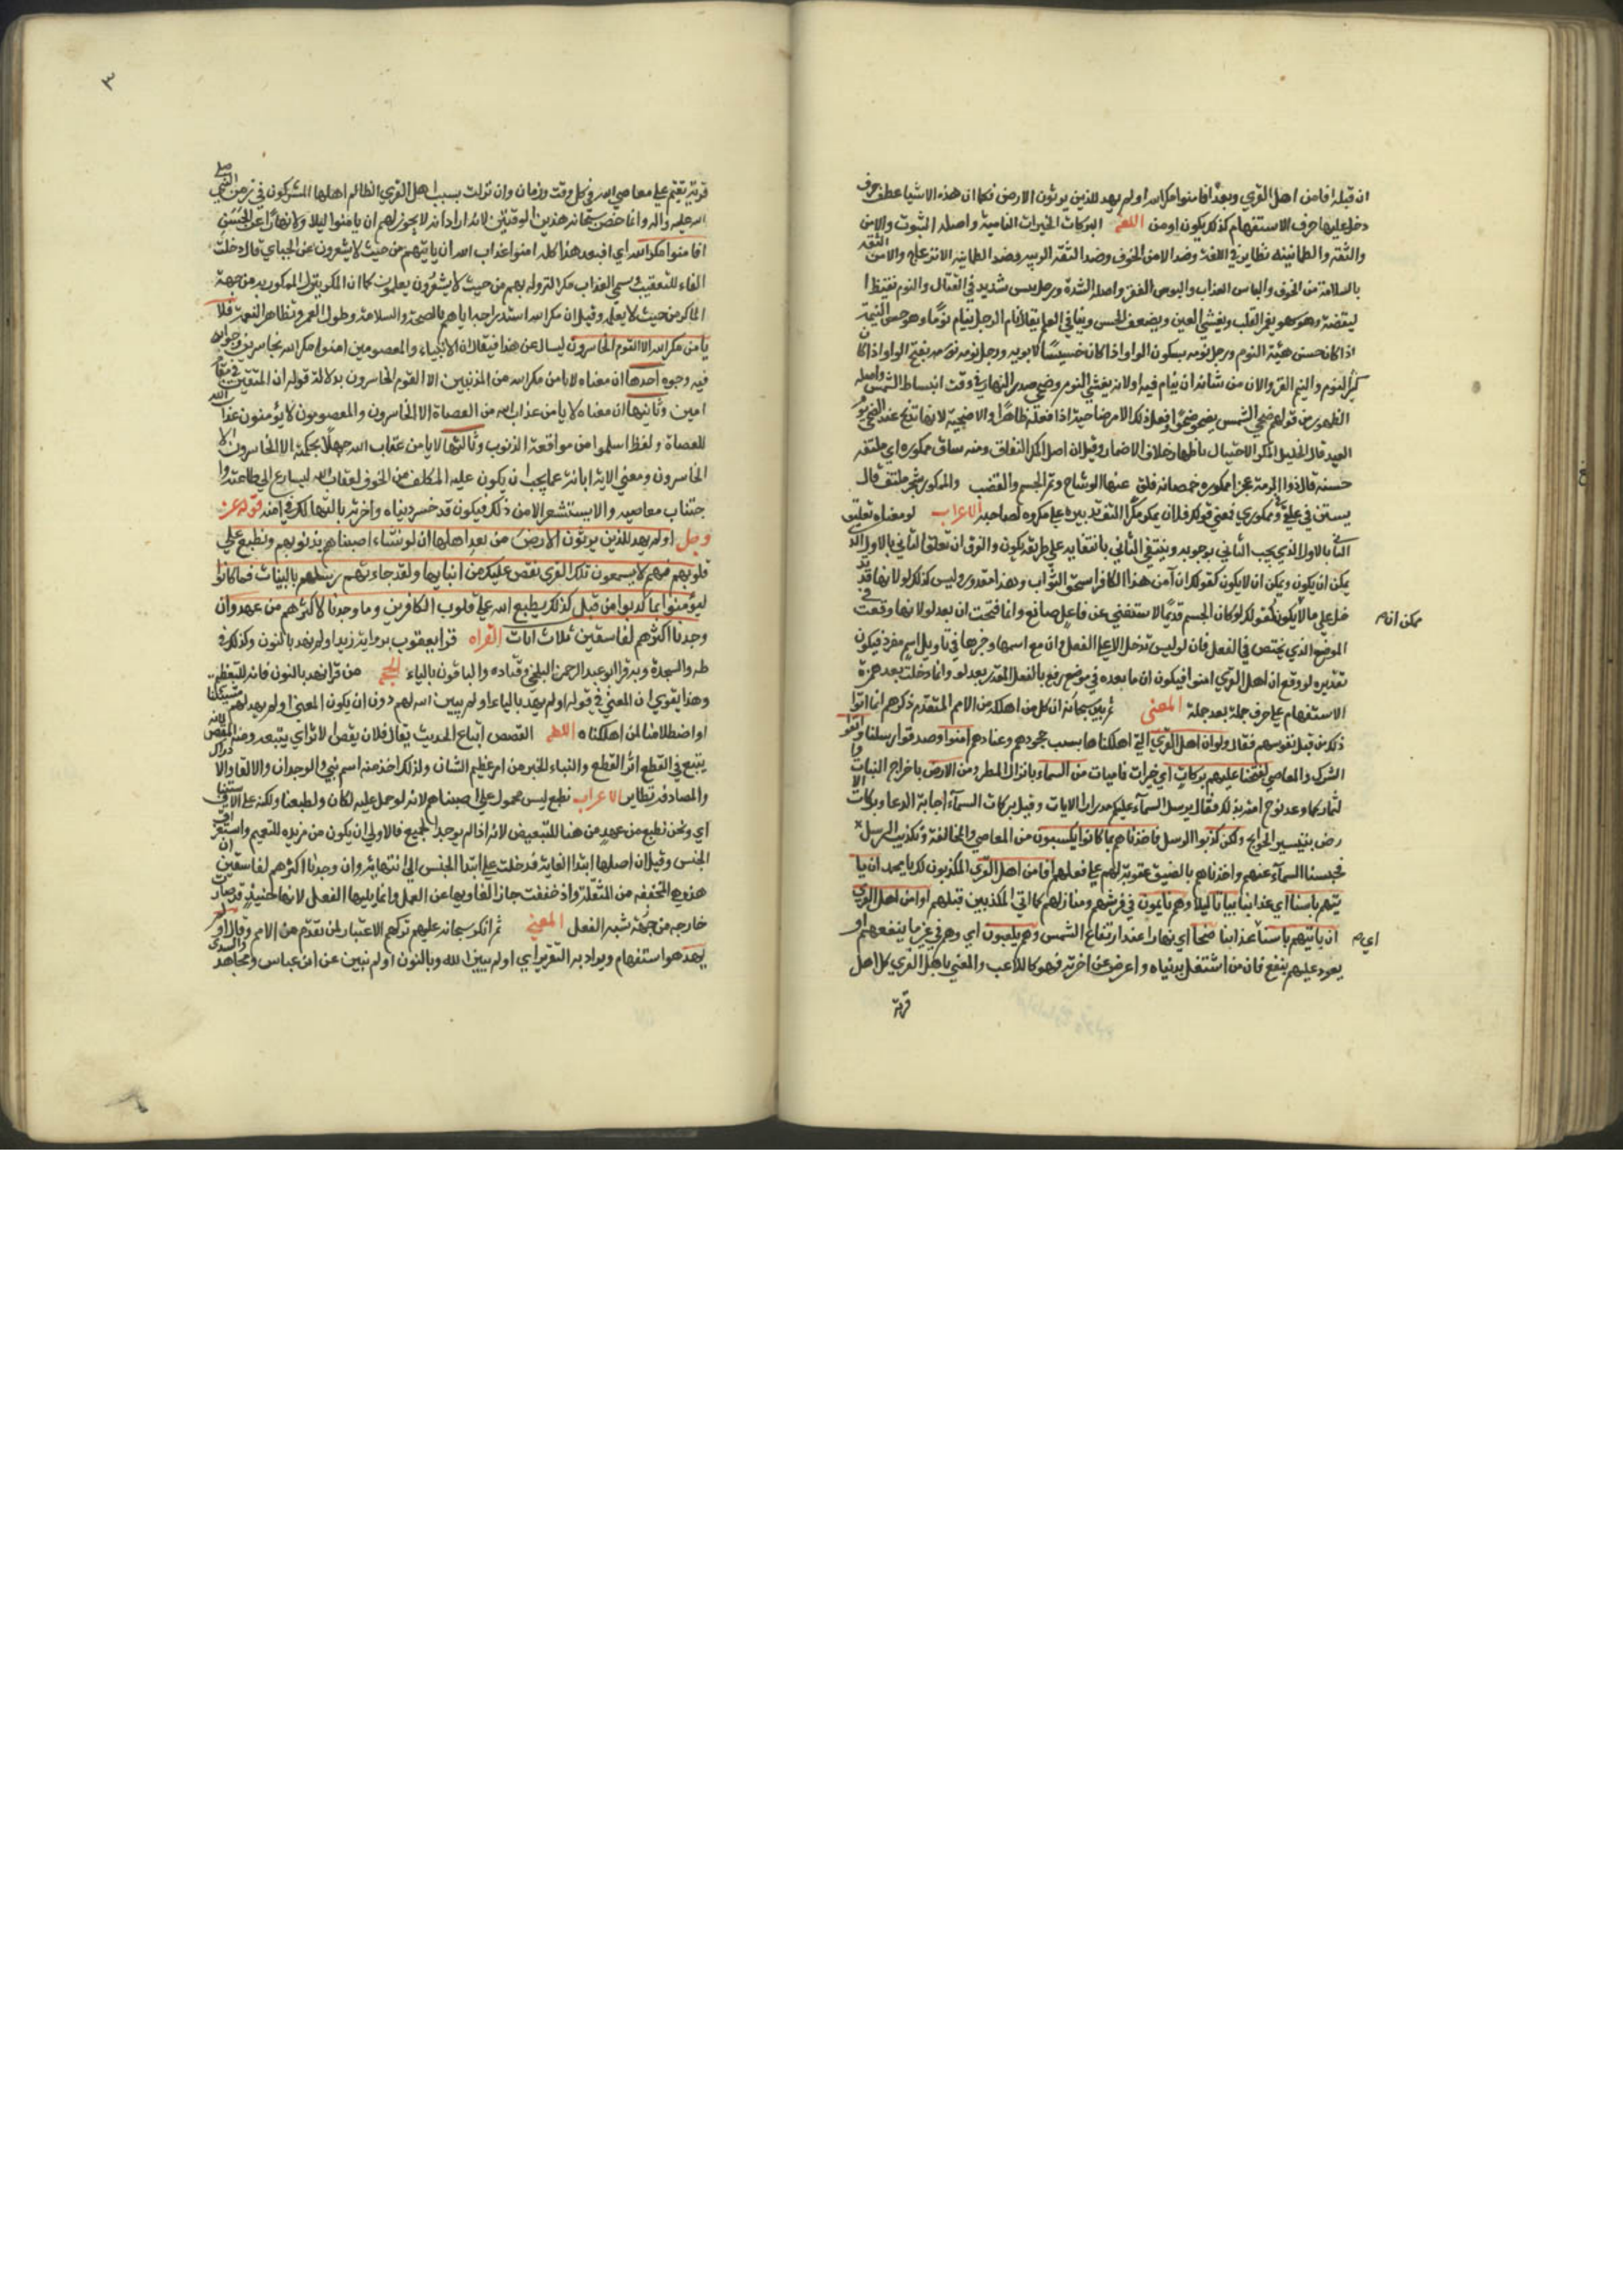 ان قبله افامن اهل القري وبعده افامنوا مكر الله اولم يهد للذين يرثون الارض فكما ان هذه الاشيا عطف حرف
دخل عليها حرف الاستفهام كذلك يكون اومن اللغه البركات الخيرات الناميه واصله الثبوت والامن
والثقه والطمانينه نظاير في اللغه وضد الامن الخوف وضد الثقه الريبه وضد الطمانينه الانزعاج والامن الثقه
بالسلامة من الخوف والباس العذاب والبوس الفقر واصله الشدة ورجل بئس شديد في القتال والنوم نقيض
اليقضة وهو سهو يغمر القلب ويغشي العين ويضعف الحس وينافي العلم يقال نام الرجل ينام نوما وهو حسن النيمة
اذا كان حسن هيئة النوم ورجل نومه بسكون الواو اذا كان خسيسا لا يوبه به ورجل نومه بفتح الواو اذا كان
كثير النوم والنيم الفرو الان من شانه ان ينام فيه اولانه يغشي النوم وضحي صدر النهار في وقت انبساط الشمس واصله
الظهور من قولهم ضحي الشمس يضحو ضحوا وفعل ذلك الامر ضاحية اذا فعله ظاهرا والاضحية لانها تذبح عند الضحي يوم
العيد قال الخليل المكر الاحتيال باظهار خلاف الاضمار وقيل ان اصل المكر التفاف ومنه ساق ممكورة اي ملتفه
حسنه قال ذوا الرمة عجزا ممكوره خمصانه قلق عنها الوشاح وتم الجسم والقصب والمكور شجر ملتف قال
يستن في علقي وفي مكور فمعني قولك فلان يمكر مكرا التف تدبيره علي مكروه لصاحبه الاعراب لو معناه تعليق
الثاني بالاول الذي يجب الثاني بوجوبه وينتفي الثاني بانتفايه علي طريقه كون والفرق ان تعلق الثاني بالاول الذي
يمكن ان يكون ويمكن ان لا يكون كقولك ان آمن هذا الكافر استحق الثواب وهذا مقدور وليس كذلك لو لانها قد تد
خل علي ما لا يكون كقولك لو كان الجسم قديما لاستغني عن فاعل صانع وانما فتحت ان بعد لو لانها وقعت في
الموضع الذي يختص في الفعل فان لو ليس تدخل الا علي الفعل وان مع اسمها وخبرها في تاويل اسم مفرد فيكون
تقديره لو وقع ان اهل القري امنوا فيكون ان ما بعده في موضع رفع بالفعل المقدر بعد لو وانما دخلت بعد همزة
الاستفهام علي حرف جملة بعد جملة المعني ثم بين سبحانه ان كل من اهلكه من الامم المتقدم ذكرهم انما اتوا
ذلك من قبل نفوسهم فقال ولو ان اهل القري التي اهلكناها بسبب جحودهم وعنادهم امنوا وصدقوا رسلنا واتقوا
الشرك والمعاصي لفتحنا عليهم بركات اي خيرات ناميات من السماء بانزال المطر ومن الارض باخراج النبات وا
لثمار كما وعد نوح امته بذلك فقال يرسل السماء عليكم مدرارا الايات وقيل بركات السماء اجابة الدعا وبركات الا
رض بتيسير الحوايج ولكن كذبوا الرسل فاخذناهم بما كانوا يكسبون من المعاصي والمخالفة وتكذيب الرسل
فحبسنا السماء عنهم واخذناهم بالضيق عقوبة لهم علي فعلهم افامن اهل القري المكذبون لك يا محمد ان يا
تيهم باسنا اي عذابنا بياتا ليلا وهم نايمون في فرشهم ومنازلهم كما اتي المكذبين قبلهم اوامن اهل القري
ان ياتيهم باسنا عذابنا ضحا اي نهارا عند ارتفاع الشمس وهم يلعبون اي وهم في غير ما ينفعهم او
يعود عليهم بنفع فان من اشتغل بدنياه واعرض عن اخرته فهو كاللاعب والمعني باهل القري كل اهل
قرية
ممكن انه م
اي م
٣
قرية يقيم علي معاصي الله في كل وقت وزمان وان نزلت بسبب اهل القري الظالم اهلها المشركون في زمن النبي صلي
الله عليه واله وانما خص سبحانه هذين الوقتين لانه اراد انه لا يجوز لهم ان يامنوا ليلا ولا نهارا عن الحسن
افامنوا مكر الله اي افبعد هذا كله امنوا عذاب الله ان ياتيهم من حيث لا يشعرون عن الجباي قال دخلت
الفاء للتعقيب وسمي العذاب مكرا لنزوله بهم من حيث لا يشعرون يعلمون كما ان المكر ينزل بالممكور به من جهة
الماكر من حيث لا يعلمه وقيل ان مكر الله استدراجه اياهم بالصحة والسلامة وطول العمر وتظاهر النعمة فلا
يامن مكر الله الا القوم الخاسرون يسال عن هذا فيقال ان الانبياء والمعصومين امنوا مكر الله بخاسرين وجوابه
فيه وجوه احدها ان معناه لا يامن مكر الله من المذنبين الا القوم الخاسرون بدلالة قوله ان المتقين في مقام
امين وثانيها ان معناه لا يامن عذاب الله من العصاة الا الخاسرون والمعصومون لا يؤمنون عذاب الله
للعصاة ولهذا سلموا من مواقعة الذنوب وثالثها لا يامن عقاب الله جهلا بحكمته الا الخاسرون الا
الخاسرون ومعني الاية ابانة عما يجب ان يكون عليه المكلف من الخوف لعقاب الله ليسارع الي طاعته وا
جتناب معاصيه ولا يستشعر الامن ذلك فيكون قد خسر دنياه واخرته بالتهالك في امنه قوله عز
وجل اولم يهد للذين يرثون الارض من بعد اهلها ان لو نشاء اصبناهم بذنوبهم ونطبع علي
قلوبهم فهم لا يسمعون تلك القري نقص عليك من انبايها ولقد جاءتهم رسلهم بالبينات فما كانوا
ليؤمنوا بما كذبوا من قبل كذلك يطبع الله علي قلوب الكافرين وما وجدنا لاكثرهم من عهد وان
وجدنا اكثرهم لفاسقين ثلاث ايات القراه قرا يعقوب برواية زيد اولم نهد بالنون وكذلك في
طه والسجدة وبه قرا ابو عبد الرحمن السلمي وقتاده والباقون بالياء الحجه من قرا نهد بالنون فانه للتعظيم
وهذا يقوي ان المعني في قوله اولم يهد بالياء اولم يبين الله لهم دون ان يكون المعني اولم يهد لهم مشيتنا
او اصطلامنا لمن اهلكناه اللغه القصص اتباع الحديث يقال فلان يقص الاثر اي يتبعه ومنه المقص لانه
يتبع في القطع اثر القطع والنباء الخبر من امر عظيم الشان ولذلك اخذ منه اسم نبي والوجدان والالفا والا دراك
والمصادفه نظاير الاعراب نطبع ليس محمول علي اصبناهم لانه لو حمل عليه لكان ولطبعنا ولكنه علي الاستينا ف
اي ونحن نطبع من عهد من هنا للتبعيض لانه اذا لم يوجد الجميع فالاولي ان يكون من مزيده للتعميم واستغراق
الجنس وقيل ان اصلها ابتدا الغاية فدخلت علي ابتدا الجنس الي انتهائه وان وجدنا اكثرهم لفاسقين ان
هذه هي المخففه من المثقلة واذ خففت جاز الغاويها عن العمل وانما يليها الفعل لانها حينيذ قد صارت
خارجه من جهة شبه الفعل المعني ثم انكر سبحانه عليهم تركهم الاعتبار لمن تقدم من الامم وقال اولم
يهد هو استفهام ويراد به التقرير اي اولم يبين الله وبالنون اولم نبين عن ابن عباس ومجاهد والسدي